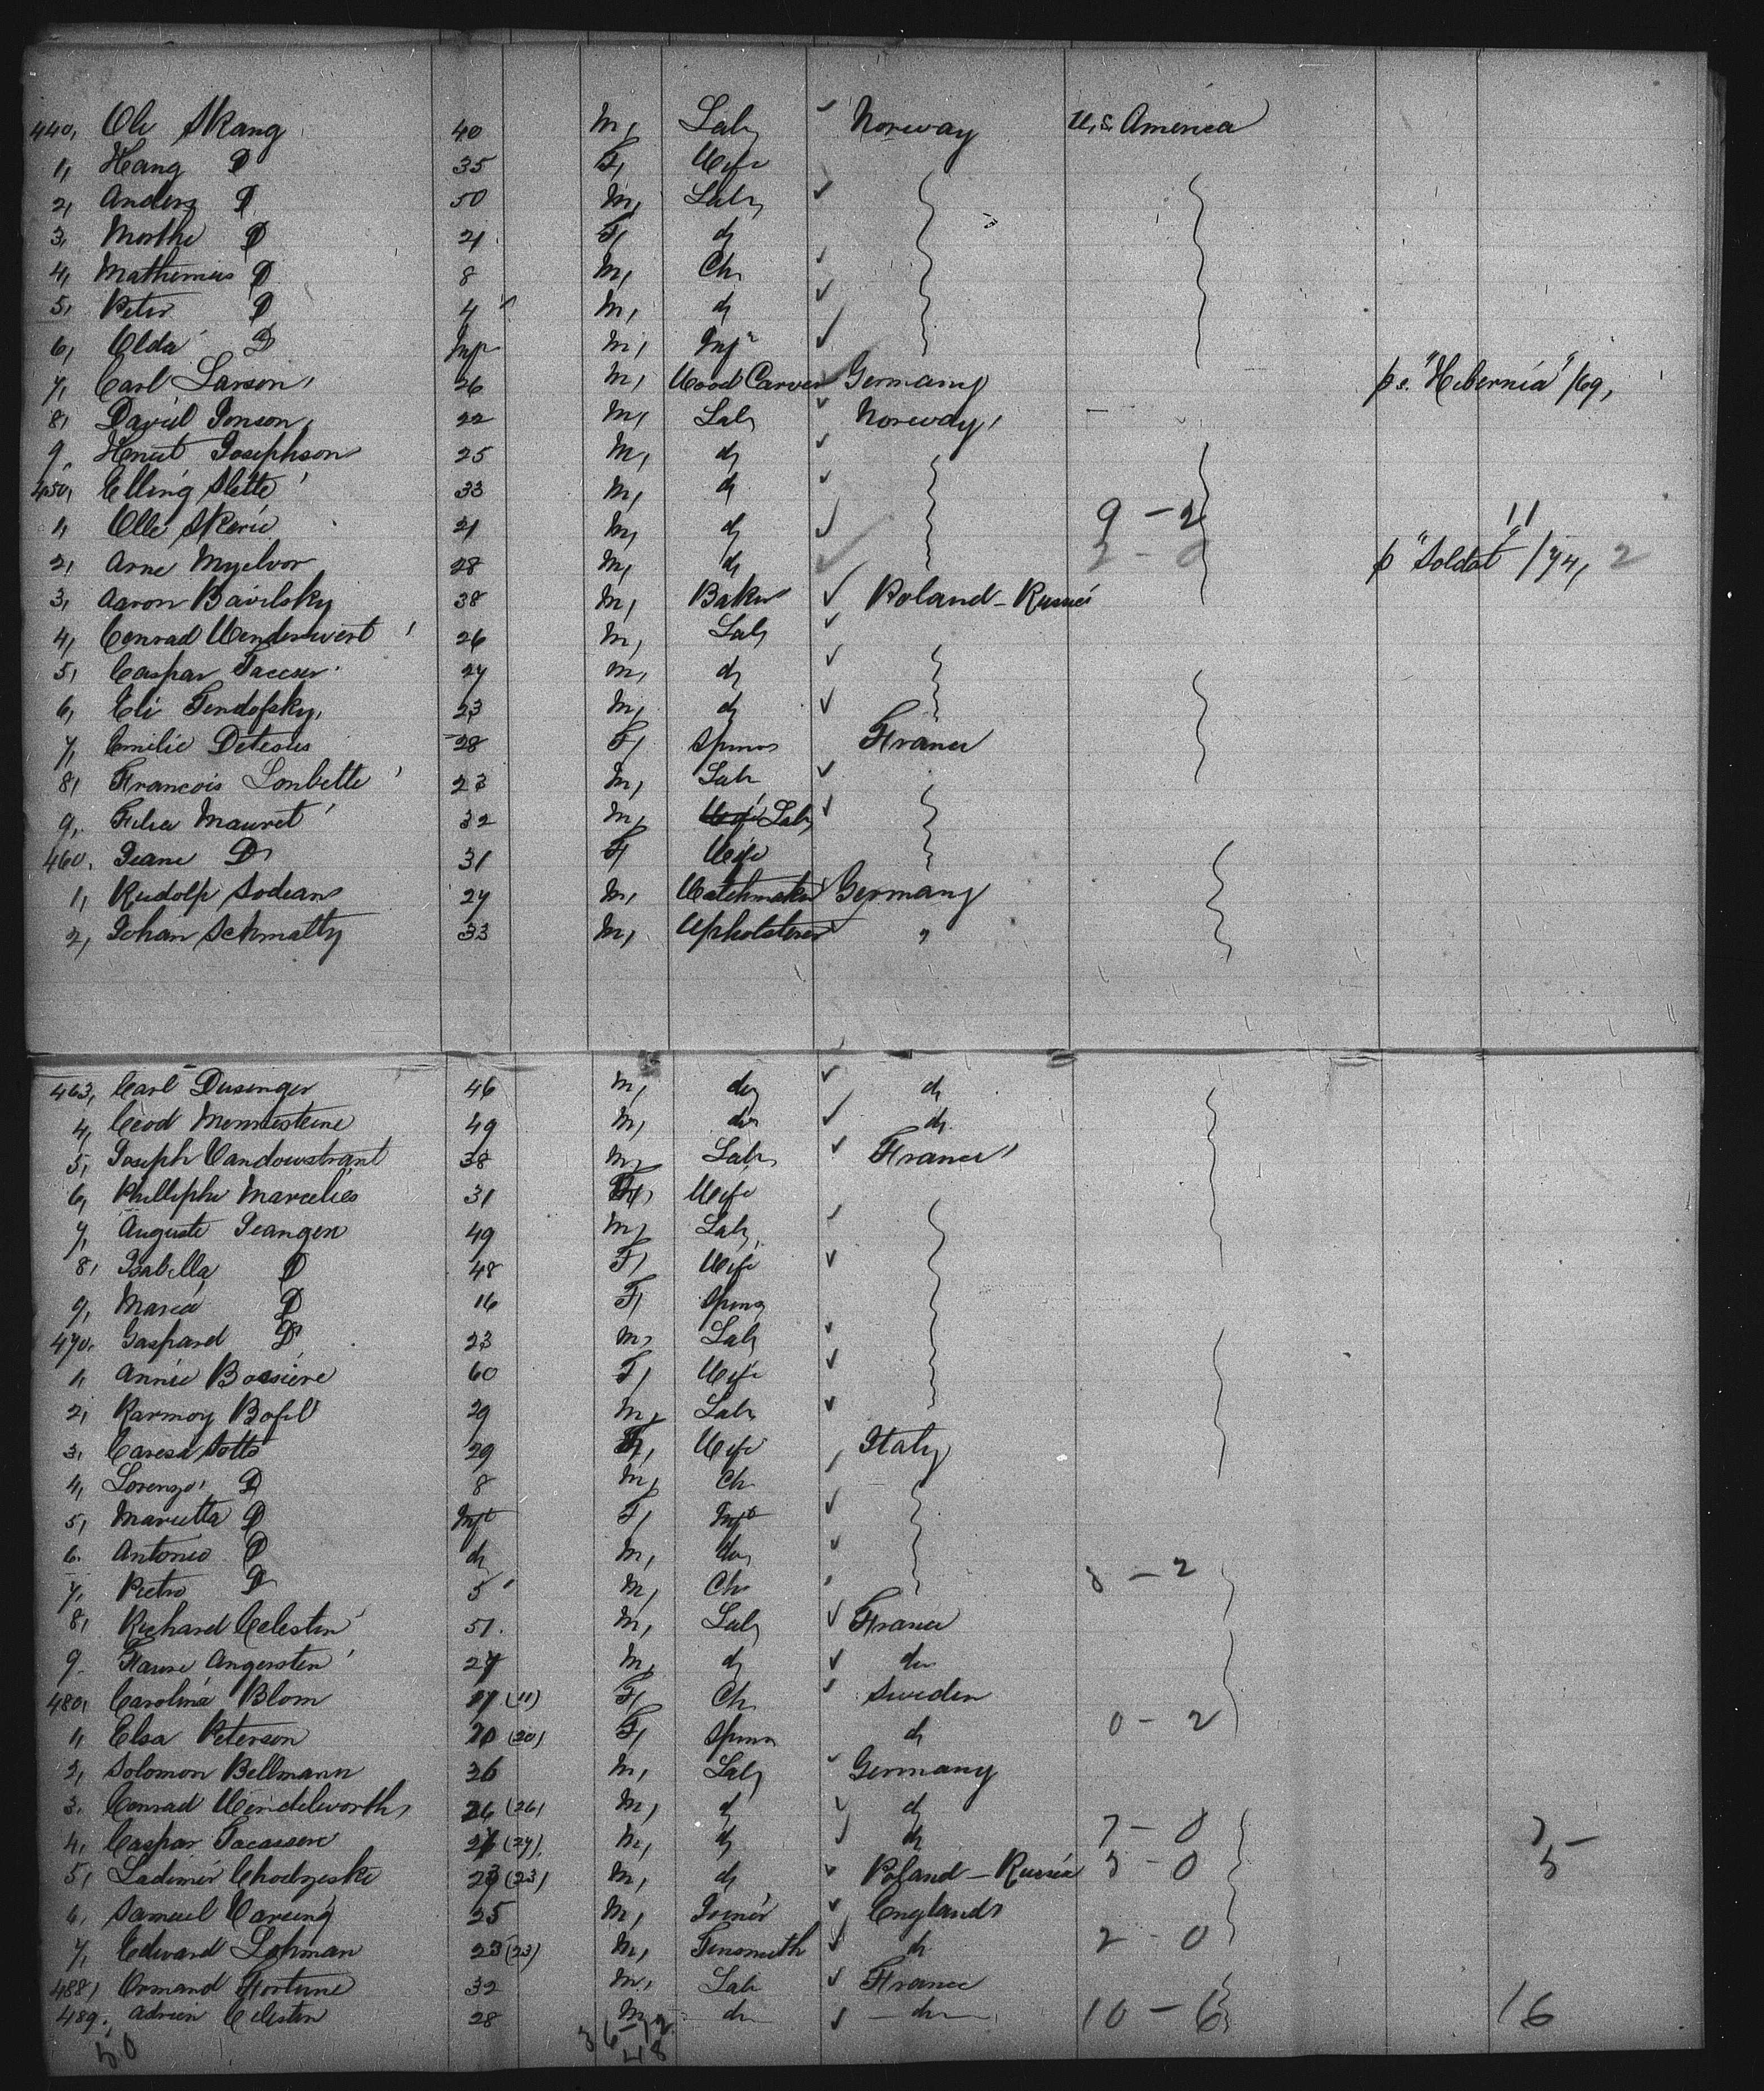 440, Ole Skang 40 M, Lab, ✓ Norway U.S. America
1, Hang D 35 F, Wife
2, Anders D 50 M, Lab, ✓
3, Marthe D 21 F, do
4, Mathemius D 8 M, Ch. ✓
5, Peter D 4 M, do ✓
6, Olda D Inf M, Inf ✓
7, Carl Larson 26 M, Wood Carver Germany p s. "Hibernia" /69,
8, David Jonson 22 M, Lab, ✓ Norway
9, Knut Josephson 25 M, do ✓
450, Elling Slette 33 M, do ✓
1, Olle Skerie 21 M, do ✓ 9 - 2 11
2, Arne Myelvor 28 M, do ✓ 2 - 0 p "Soldat" /74, 2
3, Aaron Bavilsky 38 M, Baker ✓ Poland - Russia
4, Conrad Wenderwert 26 M, Lab, ✓
5, Caspar 27 M, do ✓
6, Eli Tendofsky, 23 M, do ✓
7, Emilie 28 F, Spins France
8, Francois Lonbette 23 M, Lab ✓
9, Mauret 32 M, Wife Lab, ✓
460, Jeane D 31 F, Wife
1, Rudolf Sodean 27 M, Watchmaker Germany
2, Johan Schmalty 33 M, Upholsterer "
463, Carl Dusenger 46 M, do ✓ do
4, 49 M, do ✓ do
5, Joseph Vandowstrant 38 M, Lab, ✓ France
6, Phillephe Marcelies 31 F, Wife
7, Auguste Jeangen 49 M, Lab, ✓
8, Isabella D 48 F, Wife ✓
9, Maria D 16 F, Spins
470, Gaspard D 23 M, Lab ✓
1, Annie Bossiere 60 F, Wife ✓
2, Karmoy Bofil 29 M, Lab, ✓
3, Caresa Sotto 29 F, Wife Italy
4, Lorenzo D 8 M, Ch
5, Marietta D Inft F, Inft ✓
6, Antonio D do M, do ✓
7, Pietro D 5 M, Ch - 2
8, Richard Celestin 51 M, Lab, ✓ France
9, Angersten 27 M, do ✓ do
480, Carolina Blom (11) F, Ch ✓ Sweden
1, Elsa Peterson 20 (20) F, Spins do 0 - 2
2, Solomon Bellmann 36 M, Lab, ✓ Germany
3, Conrad Wendelworth, 26 (26) M, do ✓ do
4, Caspar 27 (27) M, do ✓ do 7 - 0 7 -
5, Ladimir Chodzeski 23 (23) M, do ✓ Poland - Russia 5 - 0 5
6, Samuel 25 M, Joiner ✓ England
7, Edward Lohman 23 (23) M, Tinsmith ✓ do 2 - 0
488, Ormand Fortune 32 M, Lab ✓ France
489, Adrien Celestin 28 M, do ✓ do 10 - 6 16
50 36 - 12
48